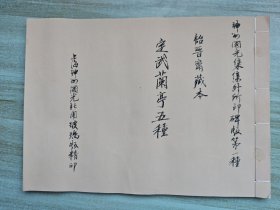 神州國光集集外所印碑版第一種
貽晉齋藏本
定武蘭亭五種
上海神州國光社用玻璃版精印